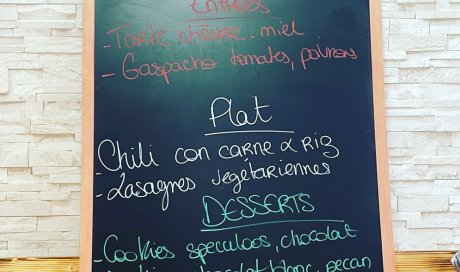 Entrées
- Tarte chèvre miel
- Gaspacho tomates, poivrons
Plat
- Chili con carne & RIZ
- Lasagnes végétariennes
DESSERTS
- Cookies speculoos, chocolat
chocolat blanc pecan